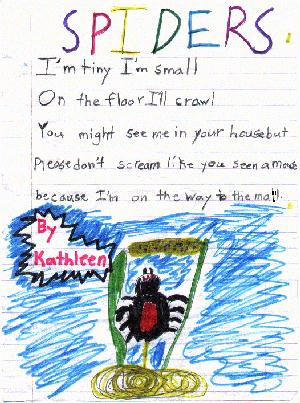 SPIDERS
I'm tiny I'm small
On the floor I'll crawl
You might see me in your house but
Please don't scream like you seen a mouse
because I'm on the way to the mall
By
Kathleen